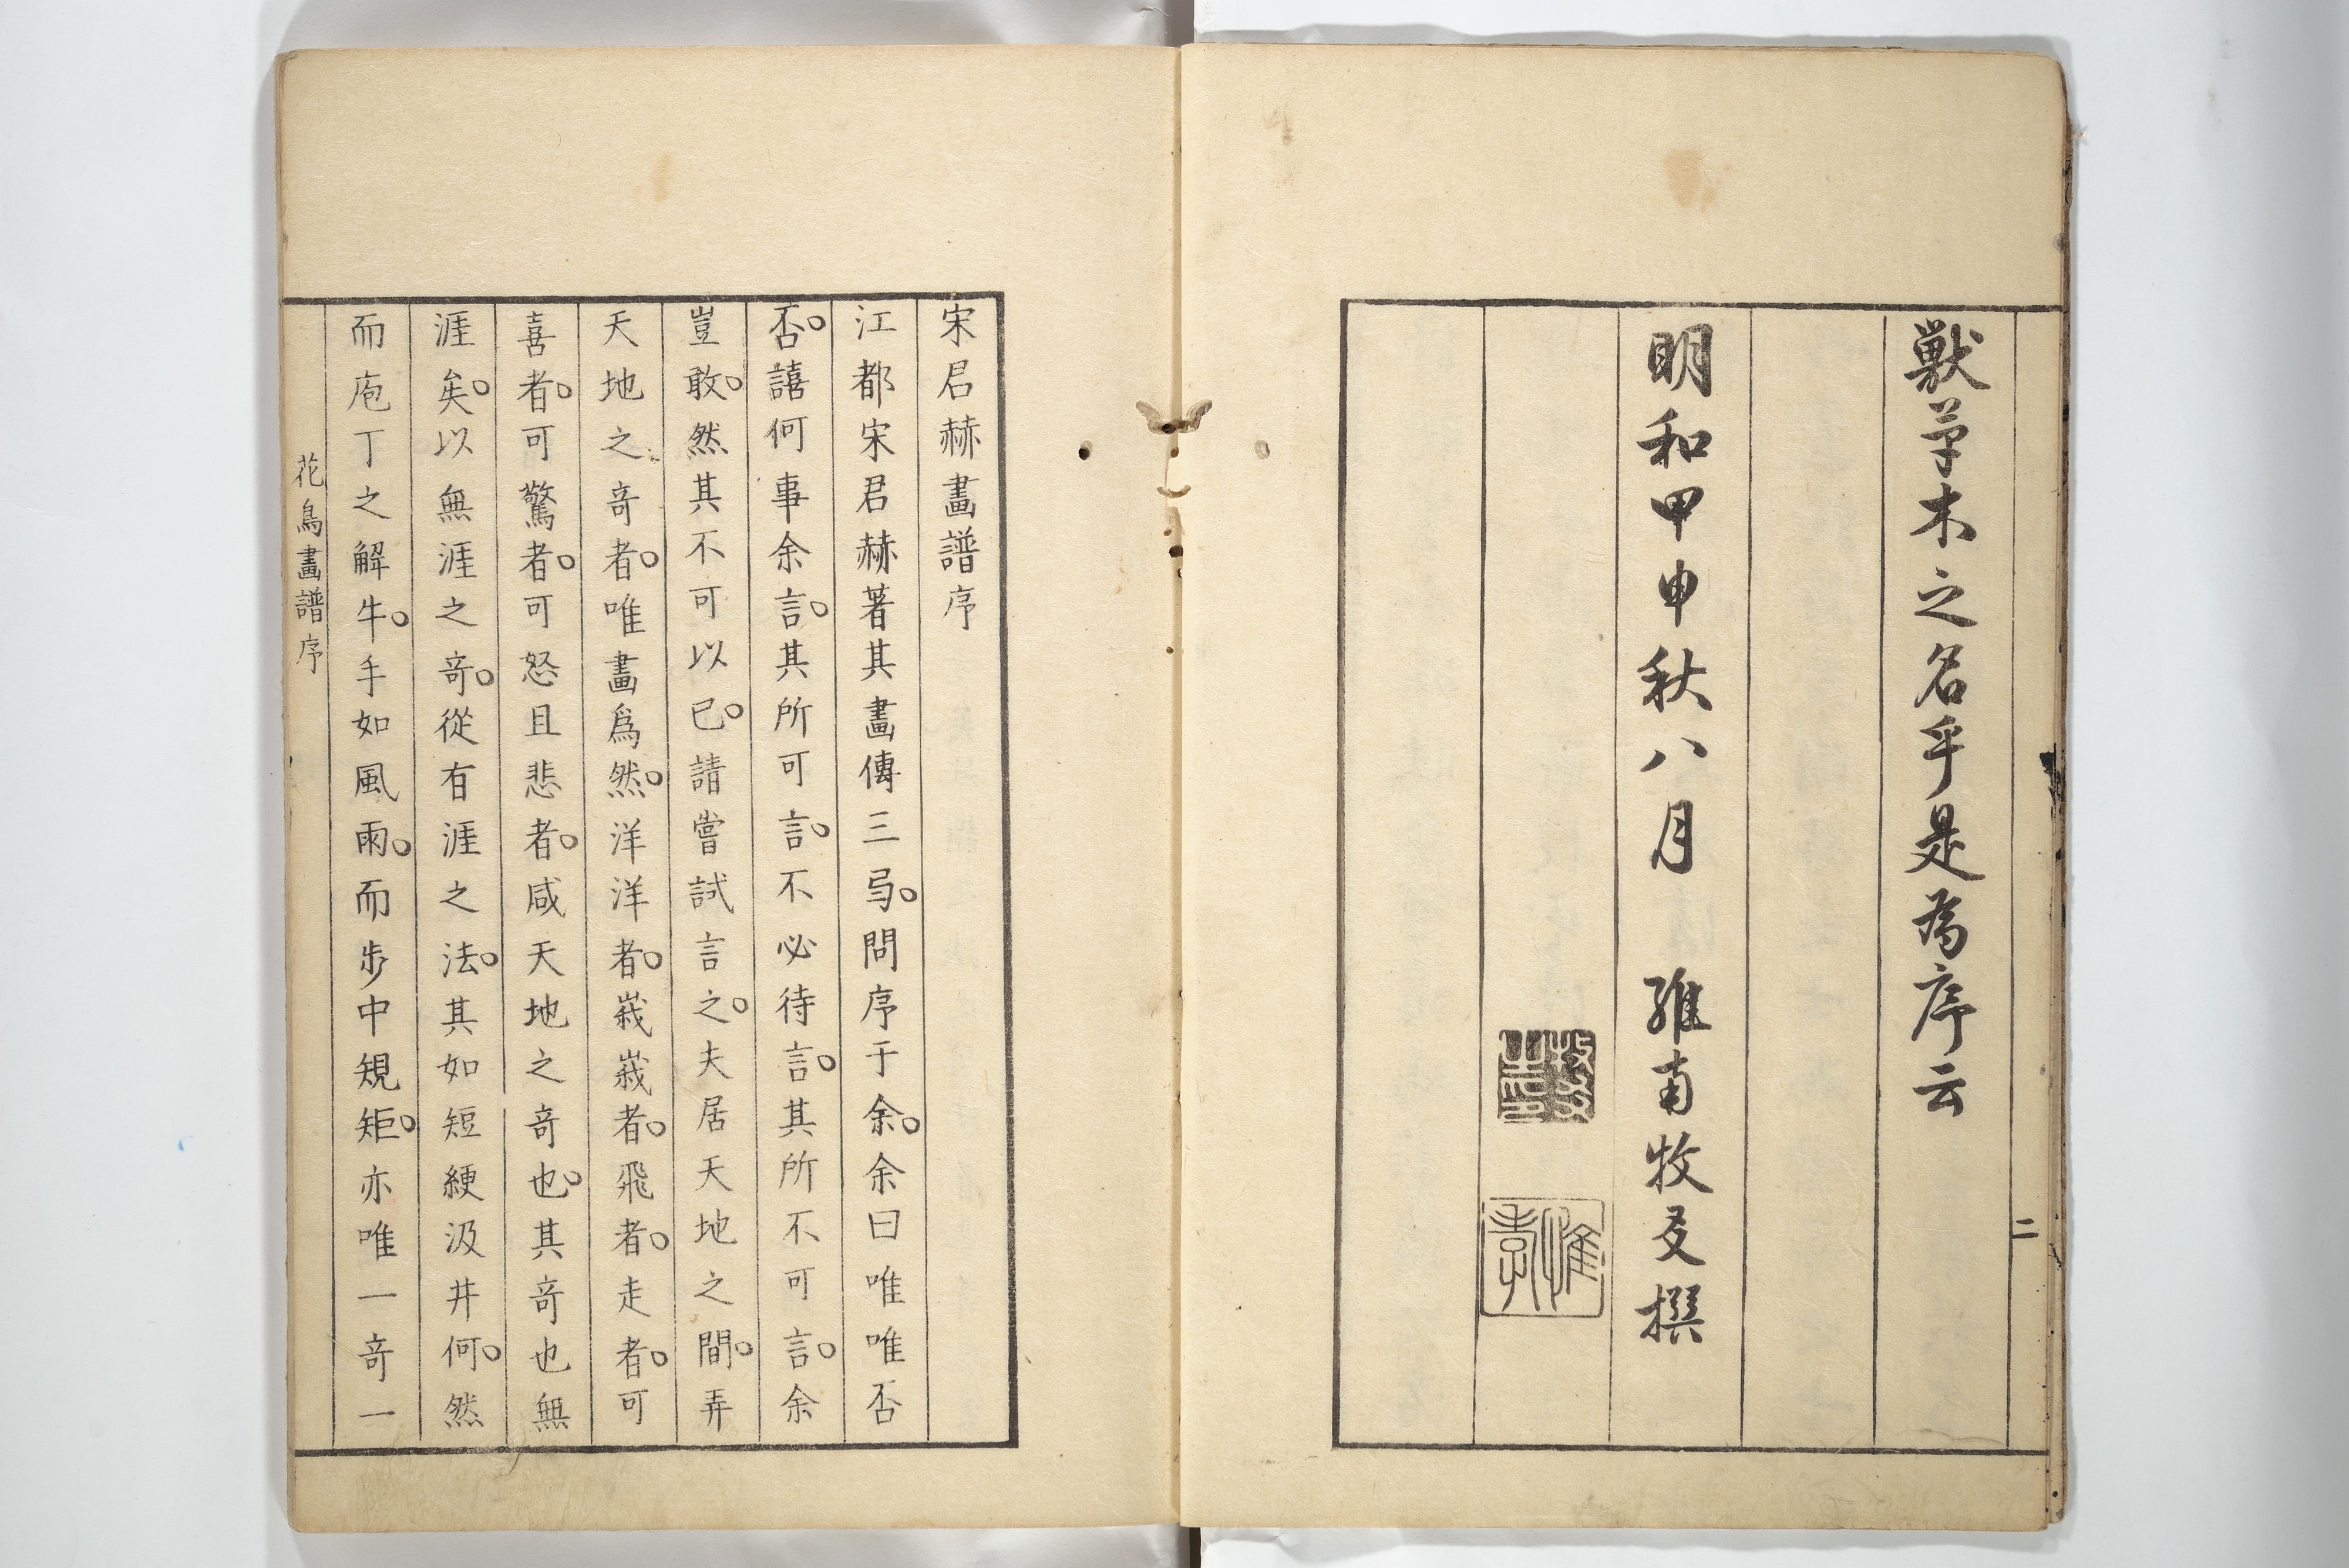 獸草木之名乎是為序云
明和甲申秋八月 維南牧㕛撰
二
宋君赫畫譜序
江都宋君赫著其畫傳三弓。問序于余。余曰唯唯否
否。譆何事余言。其所可言。不必待言。其所不可言。余
豈敢。然其不可以已。請嘗試言之。夫居天地之間。弄
天地之竒者。唯畫爲然。洋洋者。峩峩者。飛者。走者。可
喜者。可驚者。可怒且悲者。咸天地之竒也。其竒也無
涯矣。以無涯之竒。從有涯之法。其如短綆汲井何。然
而庖丁之解牛。手如風雨。而步中規矩。亦唯一竒一
花鳥畫譜序